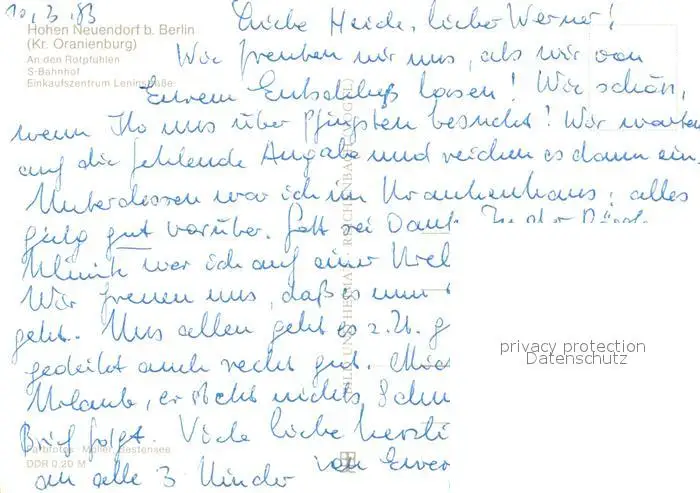 10.3.83
Hohen Neuendorf b. Berlin
(Kr. Oranienburg)
An den Rotpfuhlen
S-Bahnhof
Einkaufszentrum Leninstraße
Liebe Heide, lieber Werner!
Wie freuten wir uns, als wir von
Eurem Entschluß lasen! Wie schön,
wenn Ihr uns über Pfingsten besucht! Wir warten
auf die fehlende Angabe und reichen es dann ein.
Unterdessen war ich im Krankenhaus; alles
ging gut vorüber. Gott sei Dank. In der
Klinik war ich auf einer
Wir freuen uns, daß es nun
geht. Uns allen geht es z. Zt. g
gedeiht auch recht gut.
Urlaub, er
Brief folgt. Viele liebe herzli
an alle 3 Kinder von Eurer
Farbfotos: Müller, Bestensee
DDR 0,20 M
privacy protection
Datenschutz